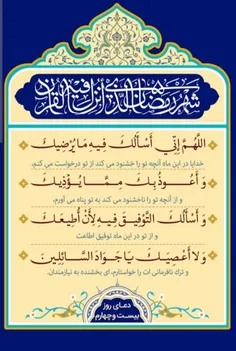 شهر رمضان الذی انزل فیه القرآن
اَللّهُمَّ اِنّی أَسْأَلُکَ فیهِ مَا یُرْضیکَ
خدایا در این ماه آنچه تو را خشنود می کند از تو درخواست می کنم،
وَ أَعُوذُ بِکَ مِمَّا یُؤْذیکَ
و از آنچه تو را ناخشنود می کند به تو پناه می آورم،
وَ أَسْأَلُکَ التَّوْفیقَ فیهِ لِأَنْ أُطیعَکَ
و از تو در این ماه توفیق اطاعت
وَ لا أَعْصِیَکَ یَا جَوَادَ السَّائِلینَ
و ترک نافرمانی ات را خواستارم، ای بخشنده به نیازمندان.
دعای روز
بیست و چهارم